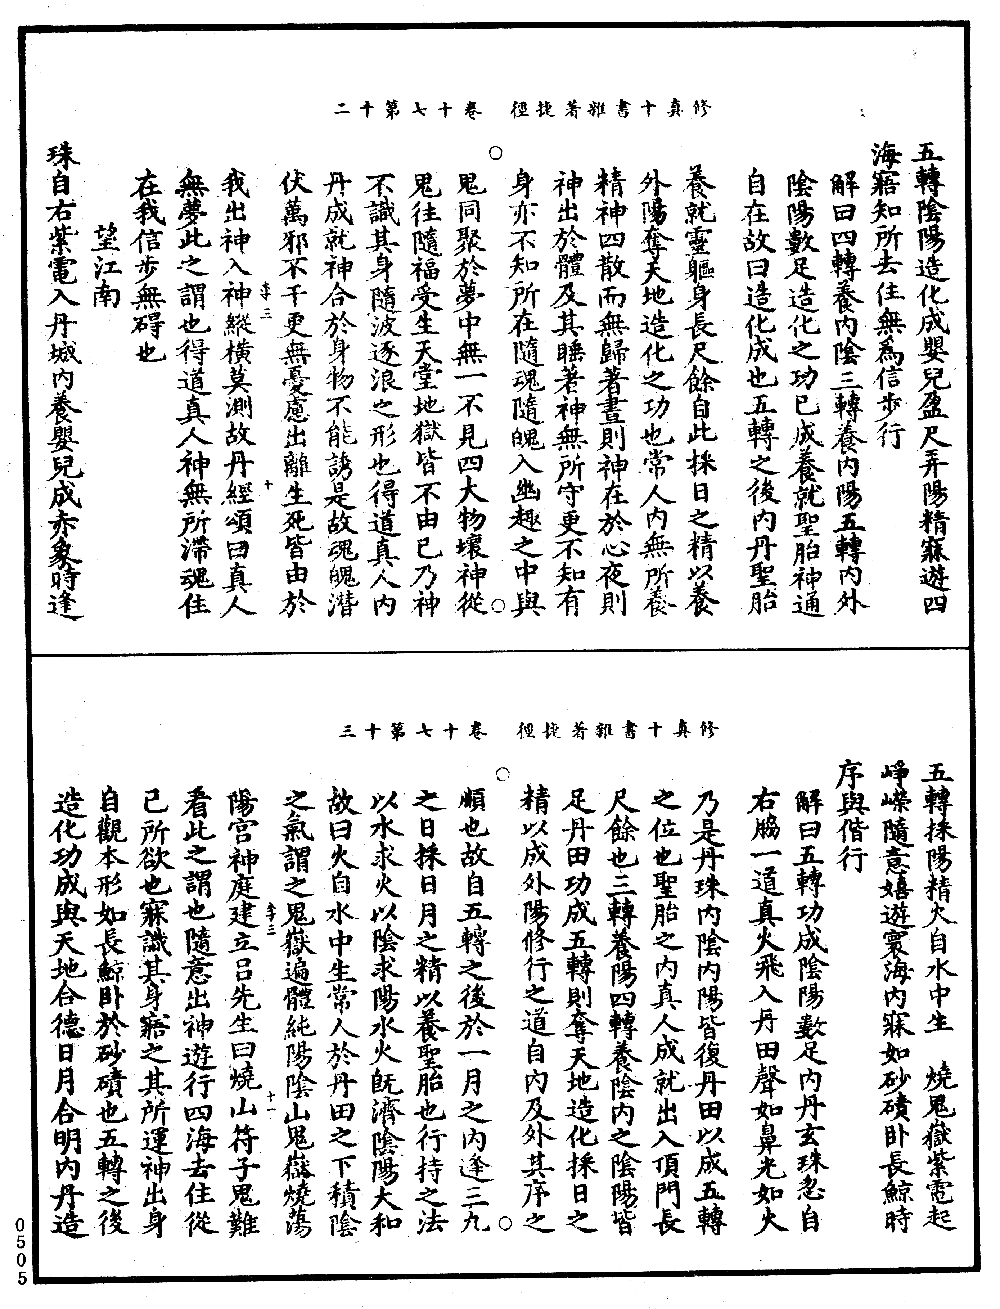 修真十書雜著捷徑　卷十七第十二
五轉陰陽造化成嬰兒盈尺弄陽精寐遊四
海寤知所去住無為信步行
解曰四轉養內陰三轉養內陽五轉內外
陰陽數足造化之功已成養就聖胎神通
自在故曰造化成也五轉之後內丹聖胎
養就靈軀身長尺餘自此採日之精以養
外陽奪天地造化之功也常人內無所養
精神四散而無歸著晝則神在於心夜則
神出於體及其睡著神無所守更不知有
身亦不知所在隨魂隨魄入幽趣之中與
鬼同聚於夢中無一不見四大物壞神從
鬼往隨福受生天堂地獄皆不由己乃神
不識其身隨波逐浪之形也得道真人內
丹成就神合於身物不能誘是故魂魄潛
伏萬邪不干更無憂慮出離生死皆由於
我出神入神縱橫莫測故丹經頌曰真人
無夢此之謂也得道真人神無所滯魂住
在我信步無碍也
望江南
珠自右紫電入丹城內養嬰兒成赤象時逢
李三
十
修真十書雜著捷徑　卷十七第十三
五轉採陽精火自水中生　燒鬼嶽紫電起
崢嶸隨意嬉遊寰海內寐如砂磧卧長鯨時
序與偕行
解曰五轉功成陰陽數足內丹玄珠忽自
右脇一道真火飛入丹田聲如鼻光如火
乃是丹珠內陰內陽皆復丹田以成五轉
之位也聖胎之內真人成就出入頂門長
尺餘也三轉養陽四轉養陰內之陰陽皆
足丹田功成五轉則奪天地造化採日之
精以成外陽修行之道自內及外其序之
順也故自五轉之後於一月之內逢三九
之日採日月之精以養聖胎也行持之法
以水求火以陰求陽水火旣濟陰陽大和
故曰火自水中生常人於丹田之下積陰
之氣謂之鬼嶽遍體純陽陰山鬼嶽燒蕩
陽宮神庭建立呂先生曰燒山符子鬼難
看此之謂也隨意出神遊行四海去住從
己所欲也寐識其身寤之其所運神出身
自觀本形如長鯨卧於砂磧也五轉之後
造化功成與天地合德日月合明內丹造
李三
十一
0505